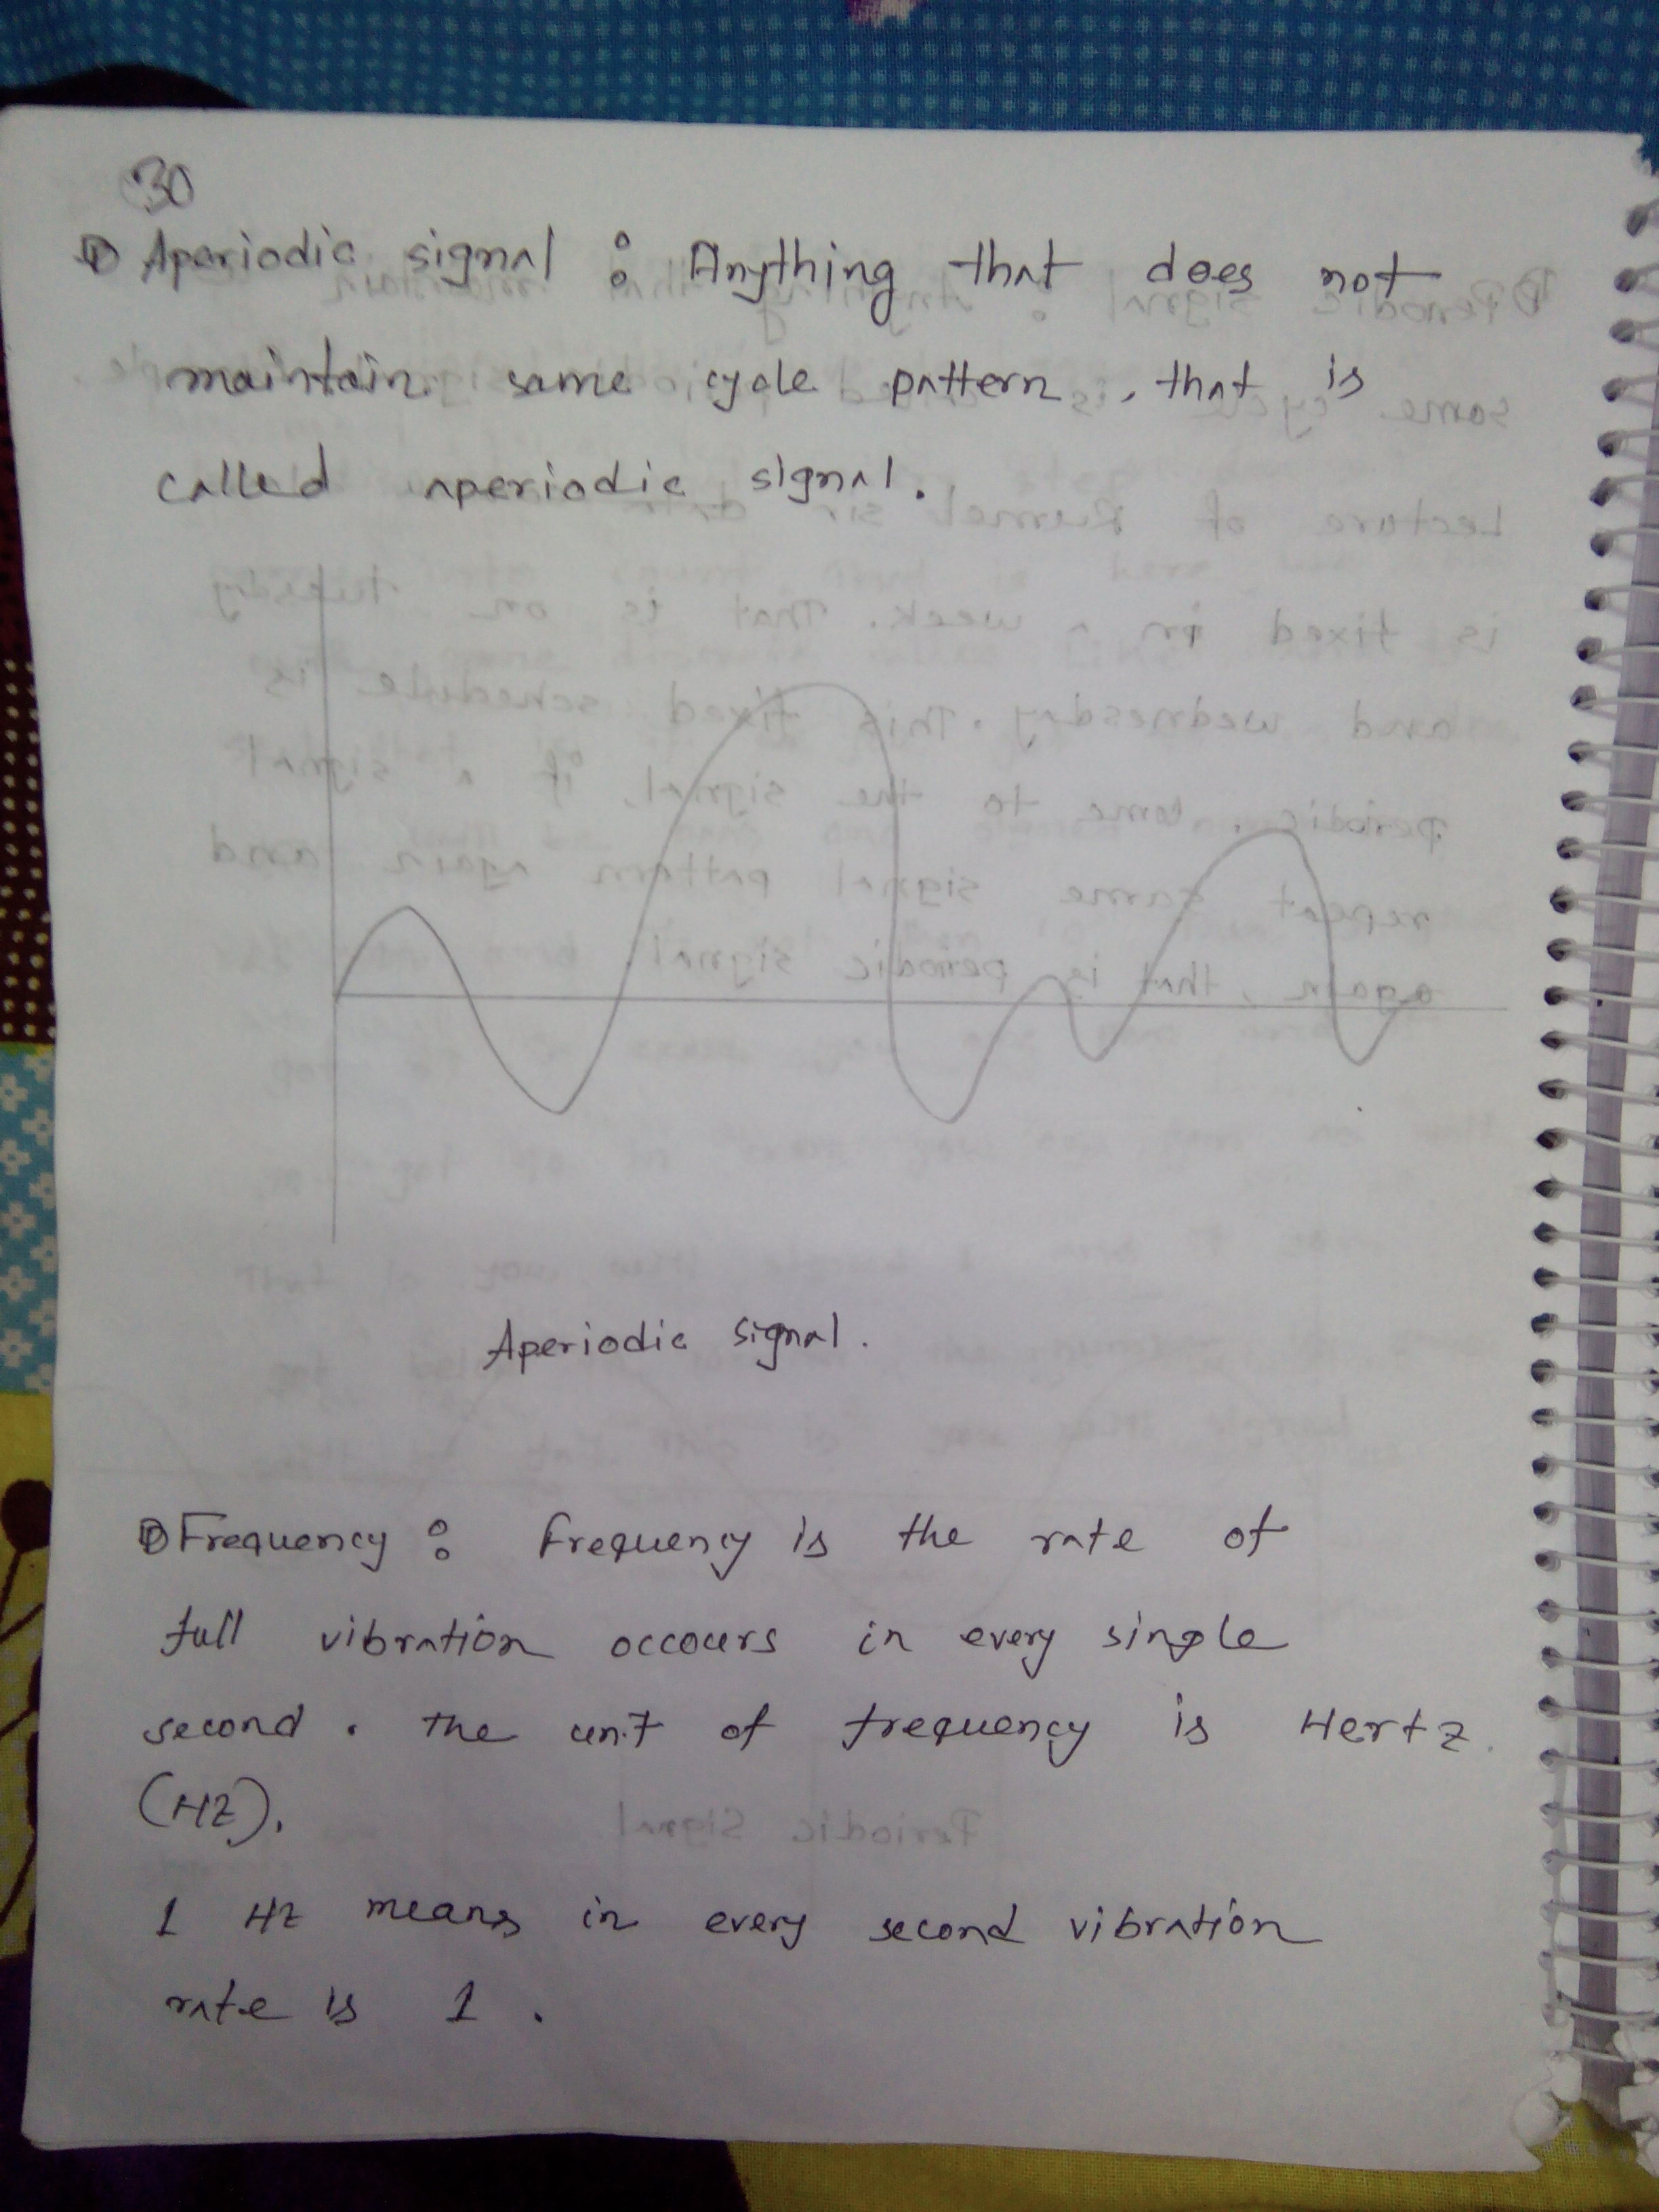 30
Aperiodic signal : Anything that does not
maintain same cycle pattern, that is
called aperiodic signal.
Aperiodic signal.
Frequency : Frequency is the rate of
full vibration occours in every single
second. The unit of frequency is Hertz.
(HZ).
1 HZ means in every second vibration
rate is 1.